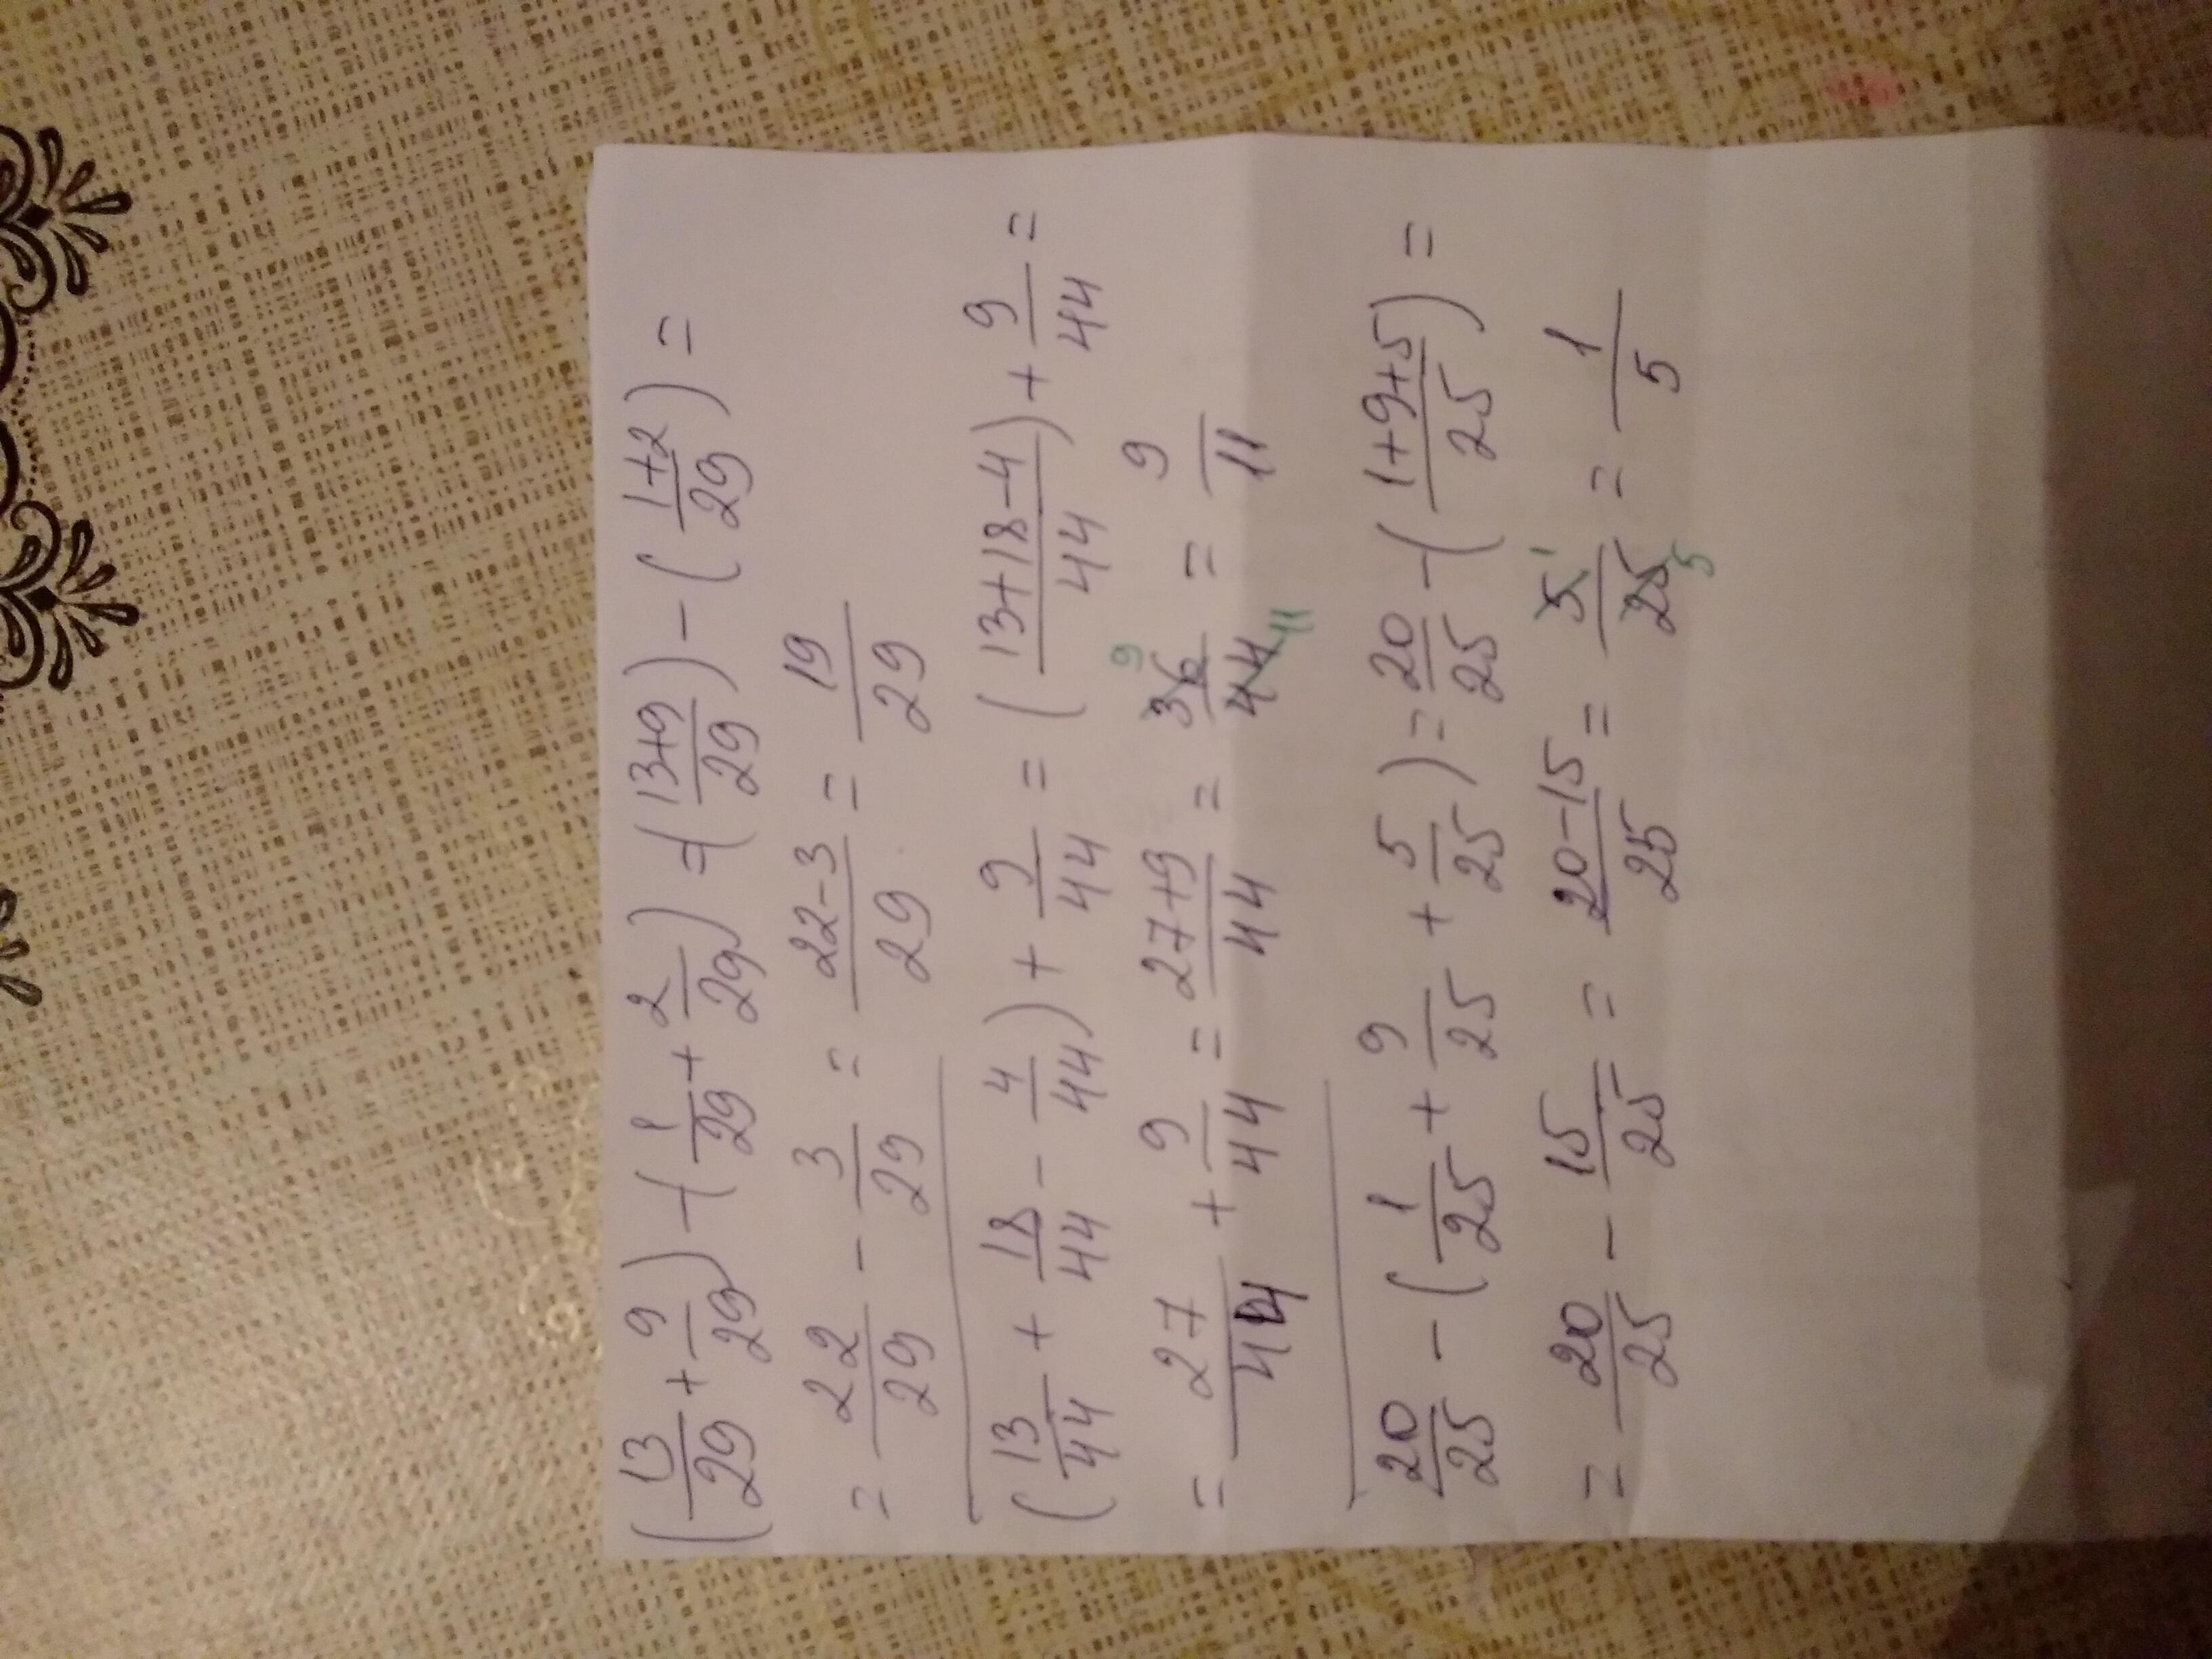 (13/29 + 9/29) - (1/29 + 2/29) = ((13+9)/29) - ((1+2)/29) =
= 22/29 - 3/29 = (22-3)/29 = 19/29
(13/44 + 18/44 - 4/44) + 9/44 = ((13+18-4)/44) + 9/44 =
= 27/44 + 9/44 = (27+9)/44 = 36 9/44 11 = 9/11
20/25 - (1/25 + 9/25 + 5/25) = 20/25 - ((1+9+5)/25) =
= 20/25 - 15/25 = (20-15)/25 = 5 1/25 5 = 1/5